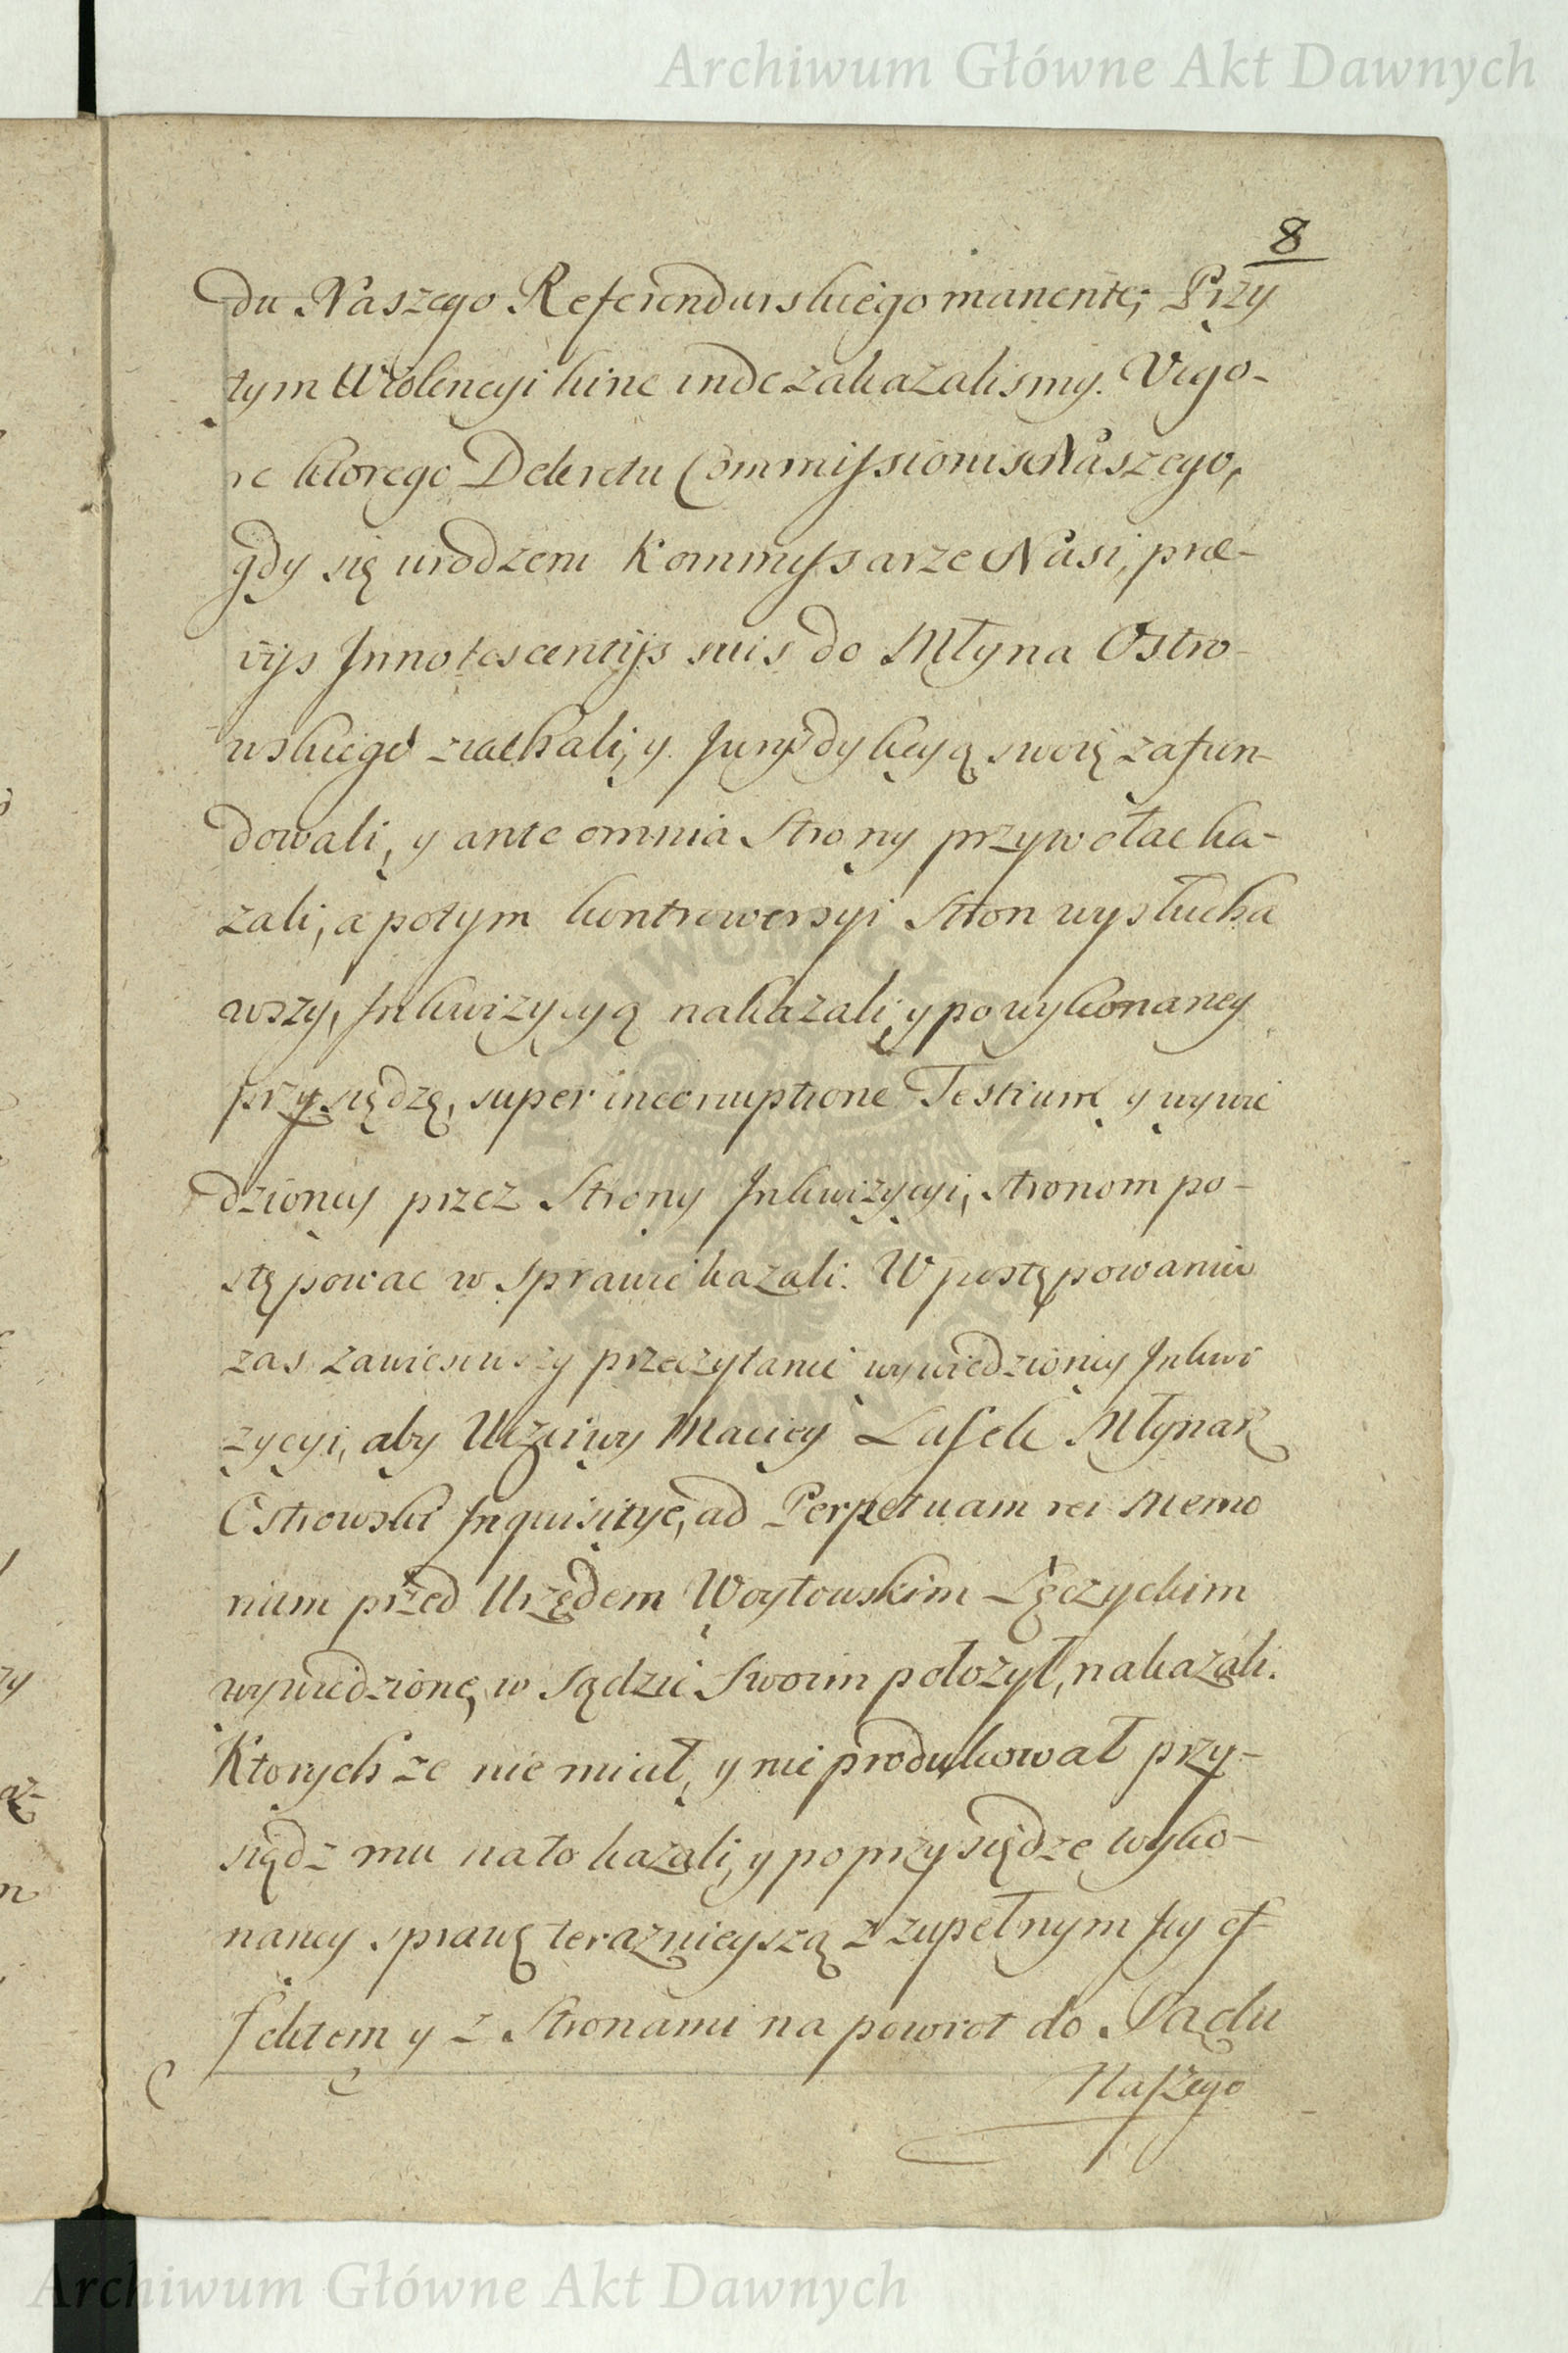 Archiwum Główne Akt Dawnych
8
du Naszego Referendarskiego manente; Przy
tym Wiolencyi hinc inde zakazalismy. Vigo-
re ktorego Dekretu Commissionis Naszego,
gdy się urodzeni Kommissarze Nasi, præ-
vijs Innotescentijs suis do Młyna Ostro-
wskiego ziachali, y Jurysdykcyą swoię zafun-
dowali, y ante omnia Strony przywołac ka-
zali, a potym kontrowersyi Stron wysłucha
wszy, Inkwizycyą nakazali, y po wykonaney
przysiędzę, super incorruptione Testium y wywie
dzioney przez Strony Inkwizycyi, stronom po-
stępowac w Sprawie kazali. W postępowaniu
zas zawiesiwszy przeczytanie wywiedzioney Inkwi
zycyi, aby Uczciwy Maciey Lasek Młynarz
Ostrowski Inquisitye, ad Perpetuam rei Memo
riam przed Urzędem Woytowskim Łęczyckim
wywiedzione, w Sądzie Swoim położył, nakazali.
Ktorych ze nie miał, y nie produkował przy-
siądz mu na to kazali, y po przysiędze wyko-
naney sprawę teraznieyszą z zupełnym Jey ef-
fektem y z Stronami na powrot do Sądu
Naszego
Archiwum Główne Akt Dawnych